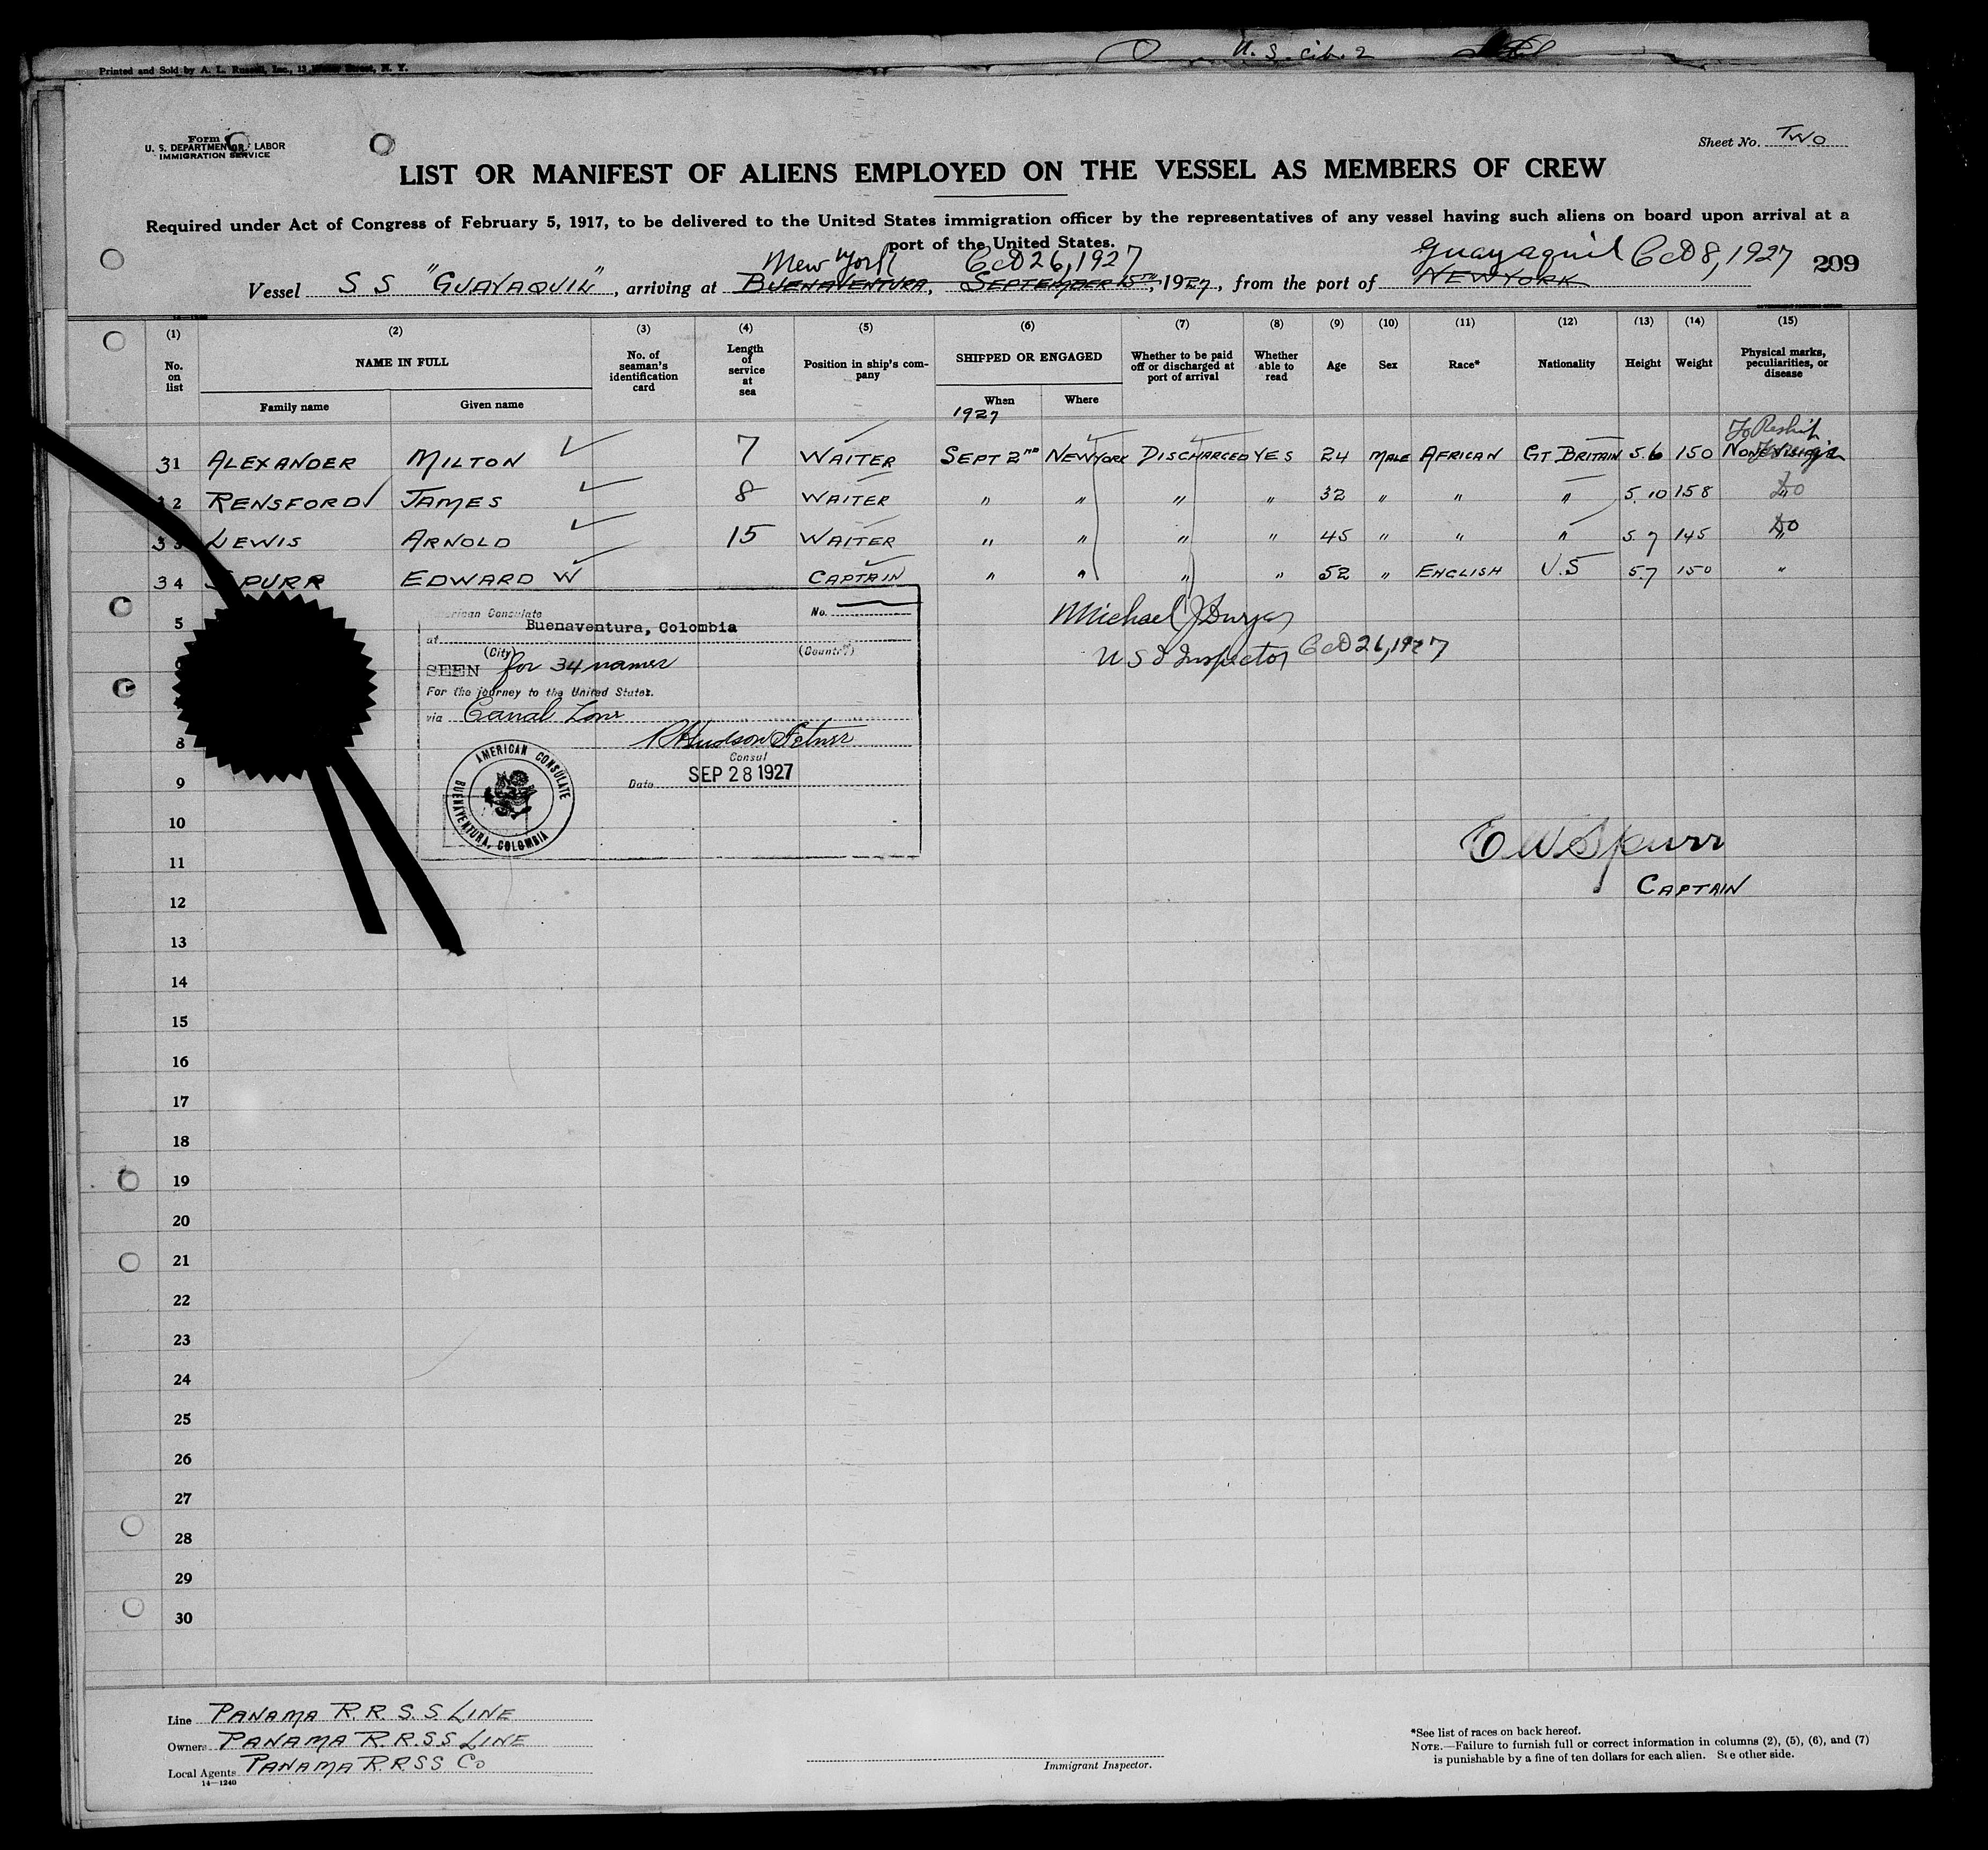 U. S. cit. 2
Printed and Sold by A. L. Russell, Inc., 13 Water Street, N. Y.
Form
U. S. DEPARTMENT OF LABOR
IMMIGRATION SERVICE
Sheet No. TWO
LIST OR MANIFEST OF ALIENS EMPLOYED ON THE VESSEL AS MEMBERS OF CREW
Required under Act of Congress of February 5, 1917, to be delivered to the United States immigration officer by the representatives of any vessel having such aliens on board upon arrival at a
port of the United States.
New York Oct 26, 1927 Guayaquil Oct 8, 1927 209
Vessel SS "GUAYAQUIL", arriving at BUENAVENTURA, SEPTEMBER 15TH, 1927, from the port of NEW YORK
(1) (2) (3) (4) (5) (6) (7) (8) (9) (10) (11) (12) (13) (14) (15)
No. on list
NAME IN FULL
Family name
Given name
No. of seaman's identification card
Length of service at sea
Position in ship's company
SHIPPED OR ENGAGED
When
Where
1927
Whether to be paid off or discharged at port of arrival
Whether able to read
Age
Sex
Race*
Nationality
Height
Weight
Physical marks, peculiarities, or disease
To Reship
31 ALEXANDER MILTON 7 WAITER SEPT 2ND NEW YORK DISCHARGED YES 24 MALE AFRICAN GT BRITAIN 5.6 150 NONE
32 RENSFORD JAMES 8 WAITER " " " " 32 " " " 5.10 158 " Do
33 LEWIS ARNOLD 15 WAITER " " " " 45 " " " 5.7 145 " Do
34 SPURR EDWARD W CAPTAIN " " " " 52 " ENGLISH U.S 5.7 150 "
American Consulate No.
at Buenaventura, Colombia
(City) (Country)
SEEN for 34 names
For the journey to the United States.
via Canal Zone
R Hudson Fetner
Consul
Date SEP 28 1927
AMERICAN CONSULATE
BUENAVENTURA, COLOMBIA
Michael J
U S I Inspector Oct 26, 1927
E W Spurr
CAPTAIN
5
8
9
10
11
12
13
14
15
16
17
18
19
20
21
22
23
24
25
26
27
28
29
30
Line PANAMA R.R. S.S. LINE
Owners PANAMA R.R.S.S LINE
Local Agents PANAMA R.R SS Co
14—1240
Immigrant Inspector.
*See list of races on back hereof.
NOTE.—Failure to furnish full or correct information in columns (2), (5), (6), and (7)
is punishable by a fine of ten dollars for each alien. See other side.